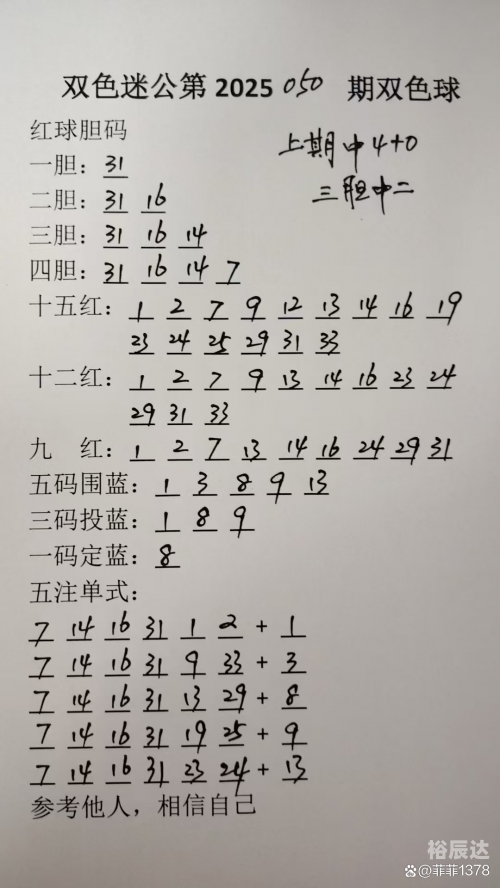 双色迷公第2025 050 期双色球
红球胆码
上期中4+0
一胆：31
三胆中二
二胆：31 16
三胆：31 16 14
四胆：31 16 14 7
十五红：1 2 7 9 12 13 14 16 19
23 24 25 29 31 33
十二红：1 2 7 9 13 14 16 23 24
29 31 33
九 红：1 2 7 13 14 16 24 29 31
五码围蓝：1 3 8 9 13
三码投蓝：1 8 9
一码定蓝：8
五注单式：
7 14 16 31 1 2 + 1
7 14 16 31 9 33 + 3
7 14 16 31 13 29 + 8
7 14 16 31 19 25 + 9
7 14 16 31 23 24 + 13
参考他人，相信自己
裕辰达
@菲菲1378